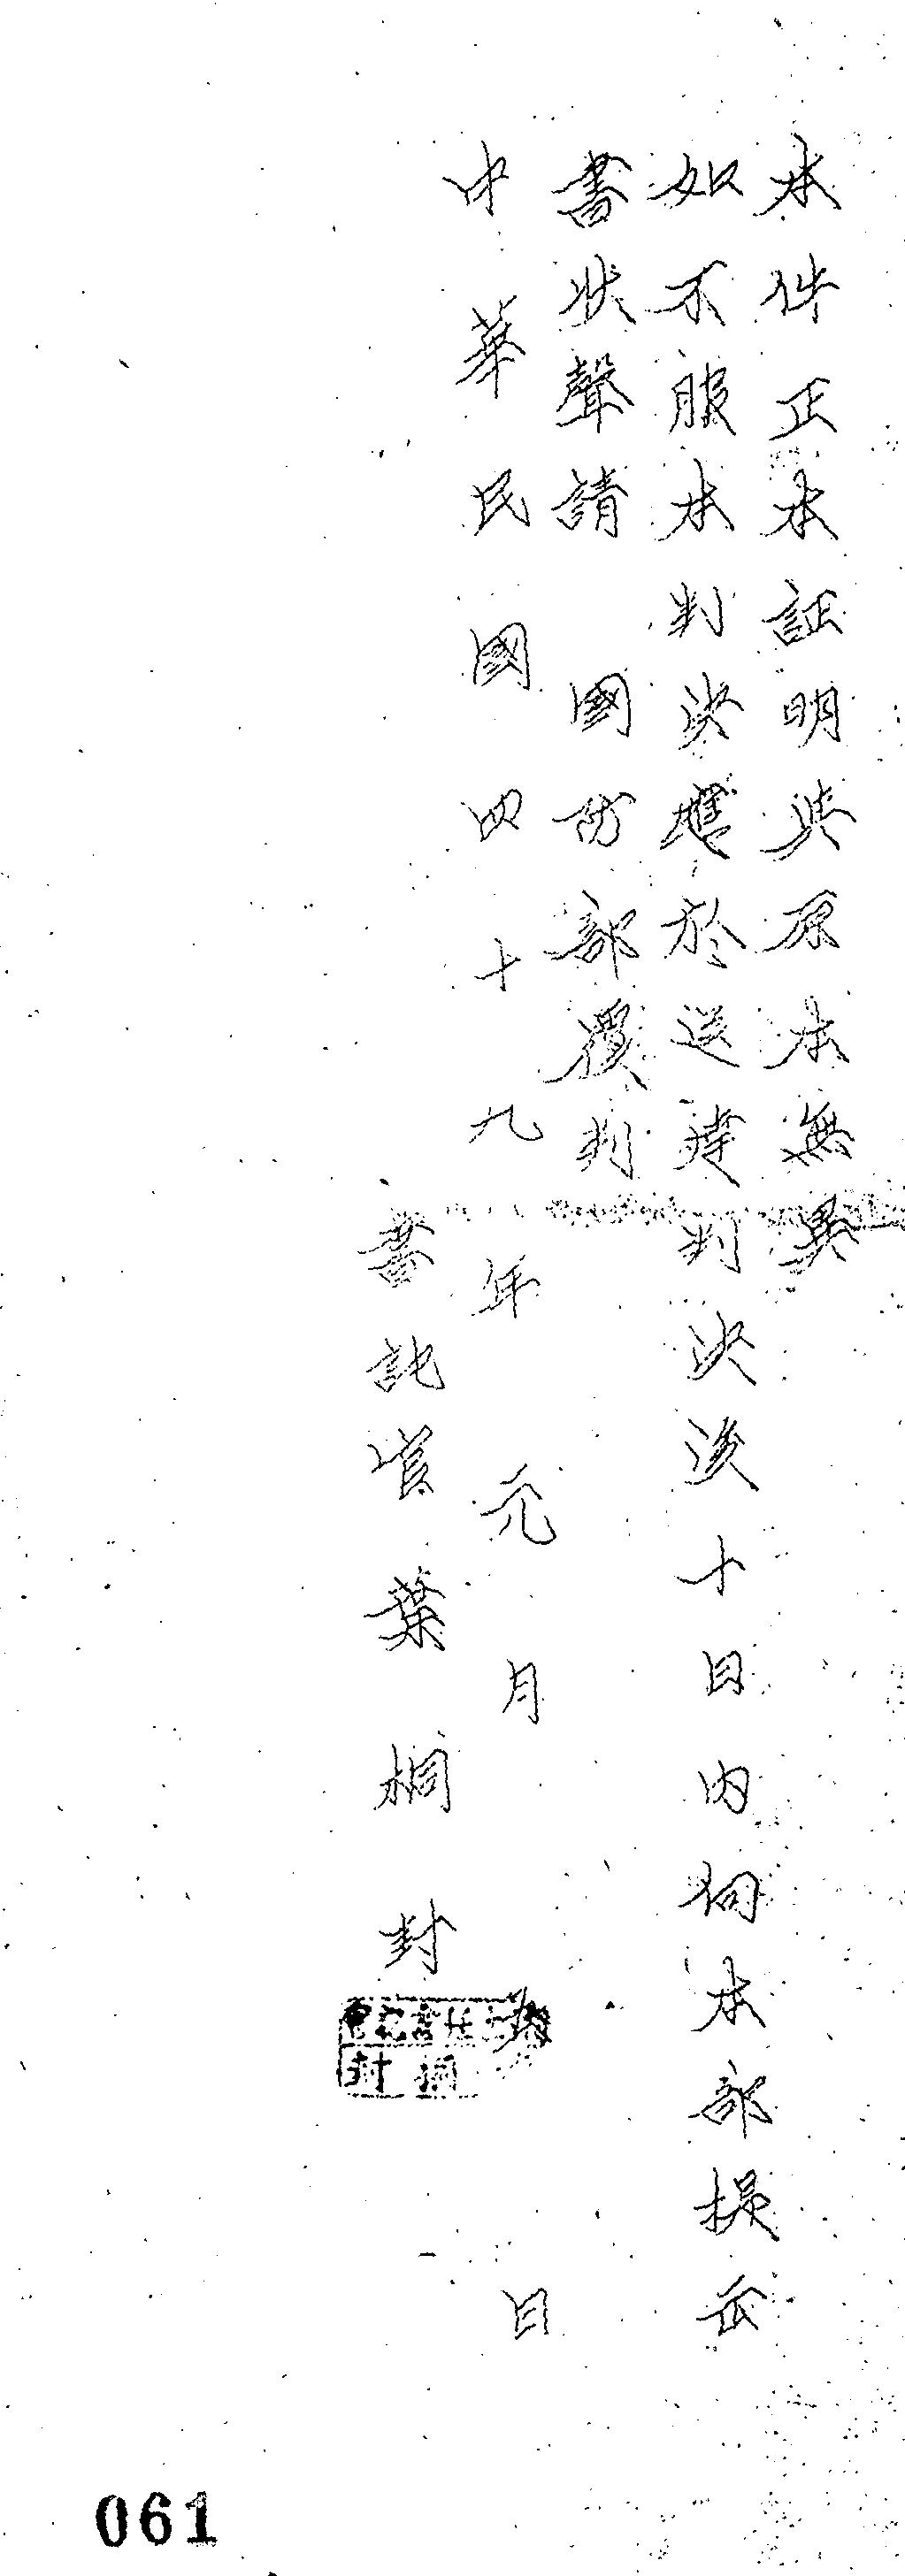 本件正本証明與原本無異
如不服本判決應於送達判決後十日內向本部提出
書狀聲請 國防部覆判
中華民國四十九年元月 日
書記官葉桐封
書記官
桐封
061